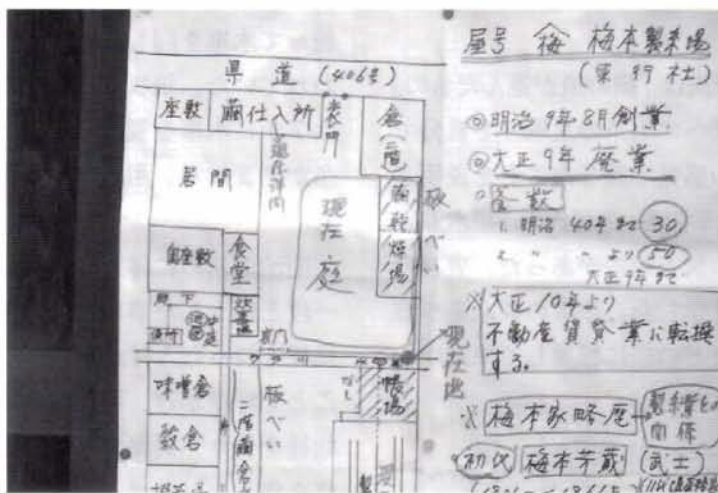 県道(406号)
座敷
繭仕入所
表門
倉(二階)
居間
現在庭
繭乾燥場
板べい
奥座敷
食堂
廊下
便所
炊事場
裏門
現在地
味噌倉
穀倉
板べい
帳場
二階繭倉
屋号 梅 梅本製糸場
(東行社)
◎明治9年8月創業
◎大正9年廃業
釜数
明治40年まで 30
より 50
大正9年まで
※大正10年より
不動産賃貸業に転換
する。
※梅本家略歴
製糸業との
関係
初代 梅本芳蔵 (武士)